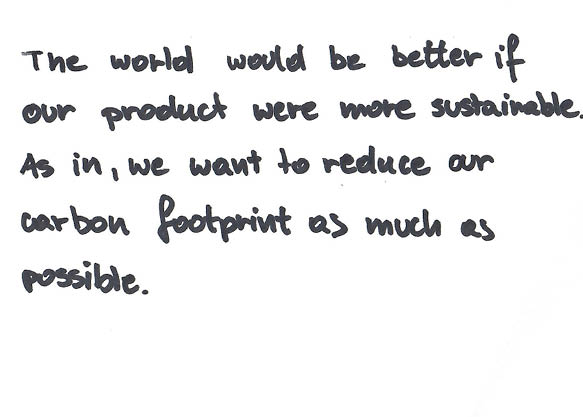 The world would be better if
our product were more sustainable.
As in, we want to reduce our
carbon footprint as much as
possible.